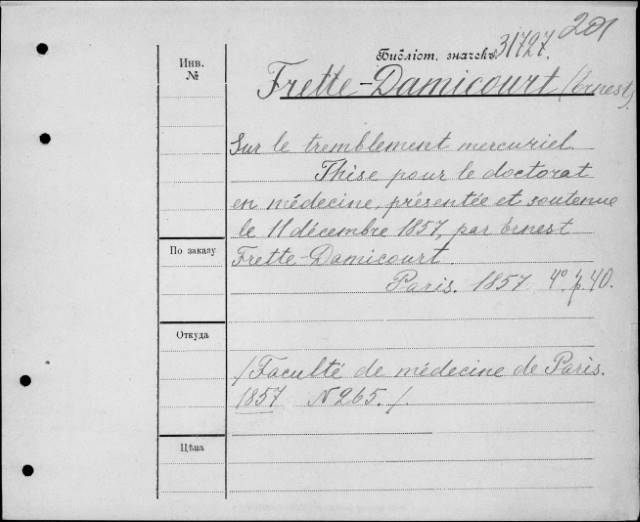 201
Библіот. значекъ 31727.
Инв.
№
Frette-Damicourt (Ernest).
Sur le tremblement mercuriel.
Thise pour le doctorat
en médecine, présentée et soutenue
le 11 décembre 1857, par Ernest
По заказу
Frette-Damicourt.
Paris. 1857. 4º. p. 40.
Откуда
/Faculté de médecine de Paris.
1857 N 265./.
Цѣна